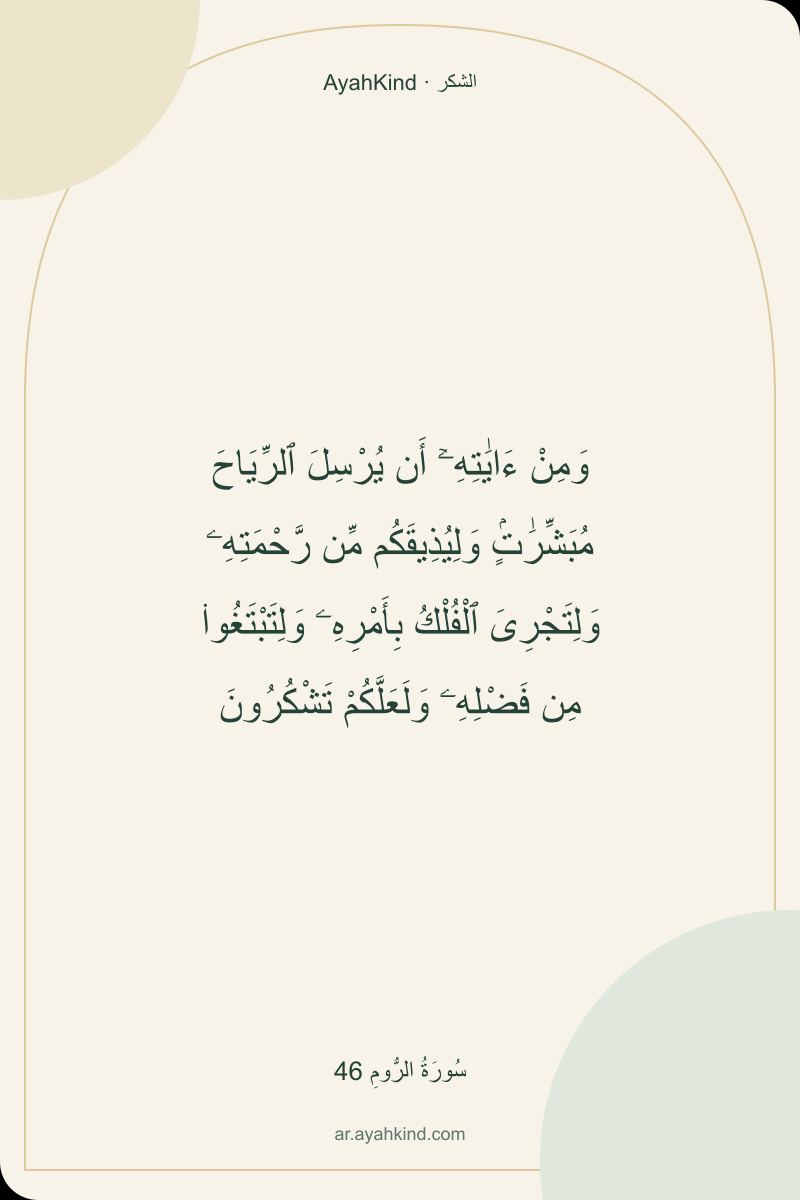 AyahKind · الشكر
وَمِنْ ءَايَٰتِهِۦٓ أَن يُرْسِلَ ٱلرِّيَاحَ
مُبَشِّرَٰتٍۢ وَلِيُذِيقَكُم مِّن رَّحْمَتِهِۦ
وَلِتَجْرِىَ ٱلْفُلْكُ بِأَمْرِهِۦ وَلِتَبْتَغُوا۟
مِن فَضْلِهِۦ وَلَعَلَّكُمْ تَشْكُرُونَ
سُورَةُ الرُّومِ 46
ar.ayahkind.com